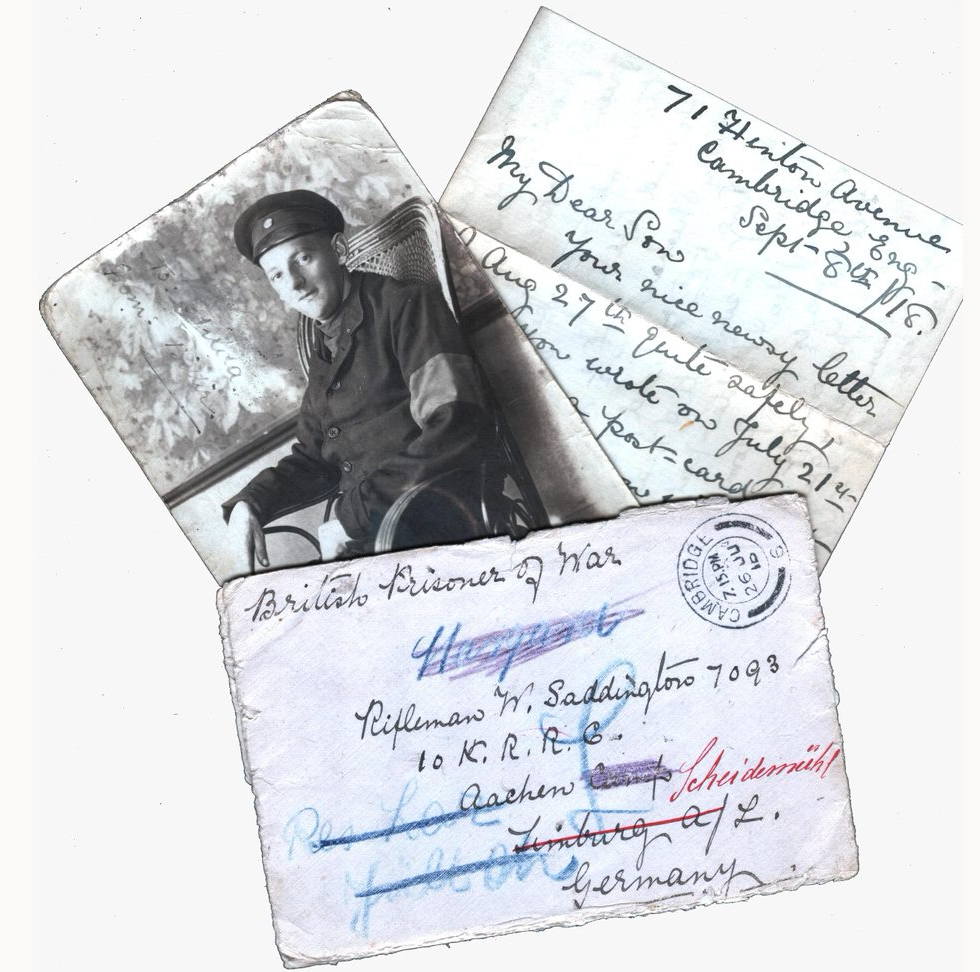 71 Hinton Avenue
Cambridge Eng-
Sept- 8th 1918.
My Dear Son
Your nice newsy letter
Aug 27th quite safely!
you wrote on July 21st-
a post-card
To
from
British Prisoner of War
CAMBRIDGE
7.15 PM
26 JU
18
Rifleman W. Saddington 7093
10 K. R. R. C.
Aachen Camp Scheidemühl
Limburg A/L.
Germany